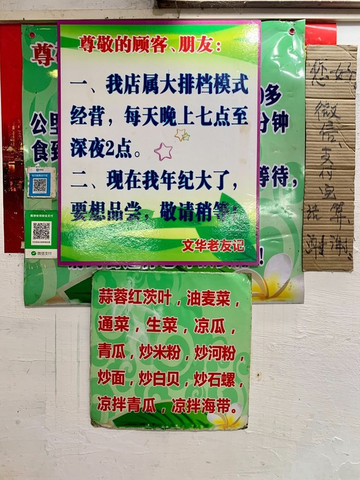 尊敬的顾客、朋友：
一、我店属大排档模式
经营，每天晚上七点至
深夜2点。
二、现在我年纪大了，
要想品尝，敬请稍等
文华老友记
尊
公里
食
多
分钟
等待，
！
您好
微信支付
谢谢
蒜蓉红茨叶，油麦菜，
通菜，生菜，凉瓜，
青瓜，炒米粉，炒河粉，
炒面，炒白贝，炒石螺，
凉拌青瓜，凉拌海带。